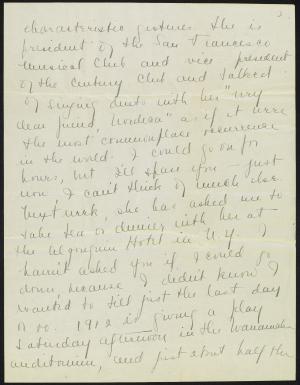 characteristic gestures. She is
president of the San Francisco
Musical Club and vice president
of the Century Club and talked
of singing duets with her "very
dear friend, Nordica" as if it were
the most commonplace occurrence
in the world. I could go on for
hours, but I'll spare you – just
now I can't think of much else.
Next week, she has asked me to
take tea or dinner with her at
the Algonquin Hotel in N.Y. I
haven't asked you if I could go
down, because I didn't know I
wanted to till just the last day
or so. 1912 is giving a play
Saturday afternoon in the Wanamaker
auditorium, and just about half the